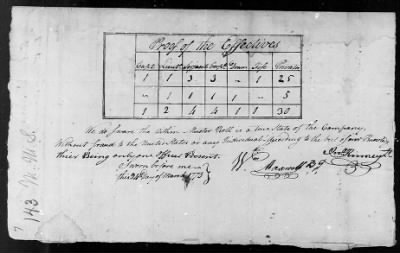 Proof of the Effectives
Capt Lieut Serjeant Corpl Drum Fife Private
1 1 3 3 ~ 1 25
~ 1 1 1 1 ~ 5
1 2 4 4 1 1 30
We do swear the within Muster Roll is a true State of the Company
Without fraud to the United States or any Individual According to the best of our Knowledge
there Being only one Officer Present
Sworn before me
this 24 Day of March
Wm Maxwell B G
143